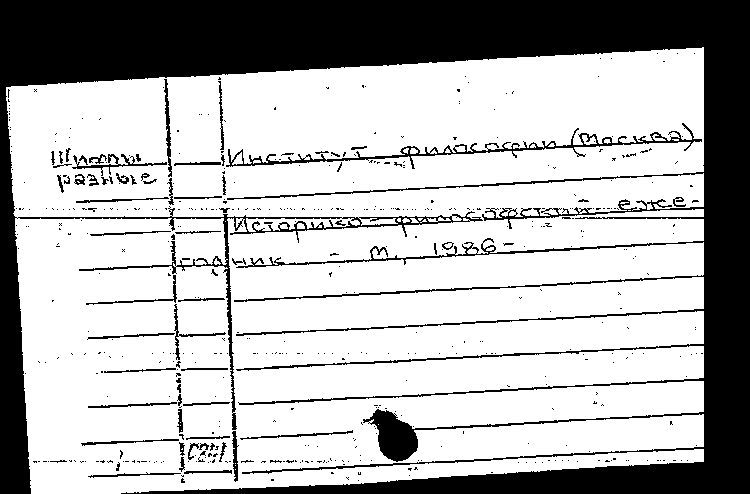 Шифры
разные
Институт философии (Москва)
Историко-философский еже-
годник - М., 1986-